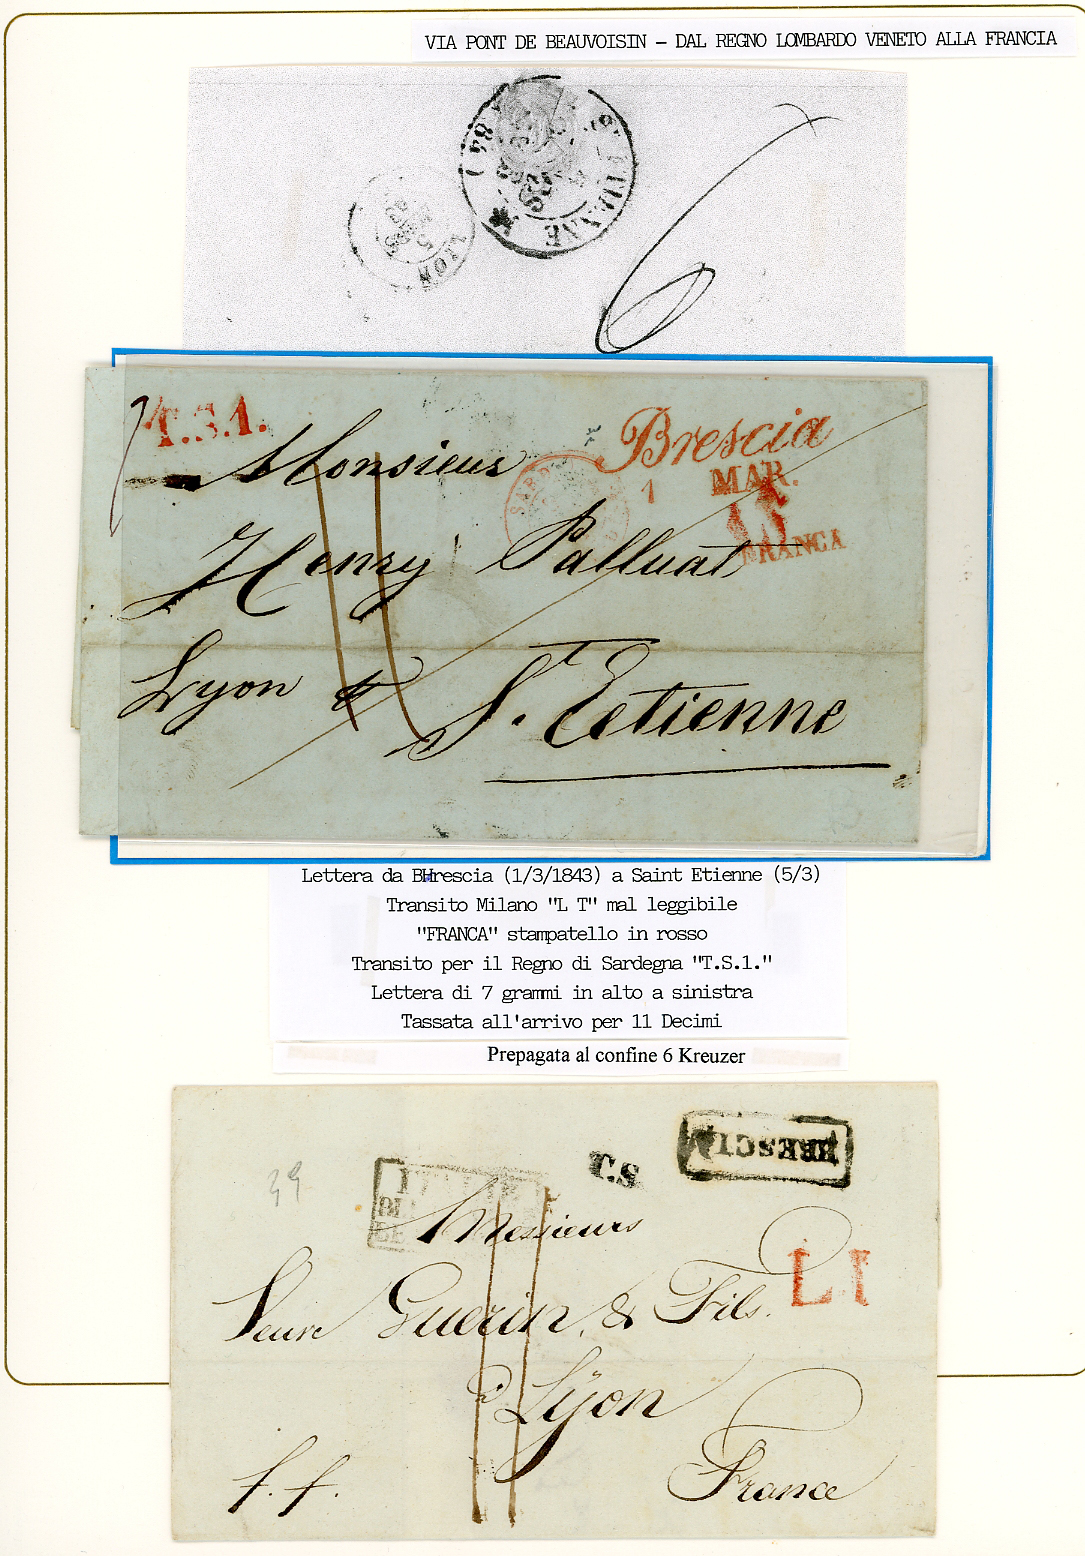 VIA PONT DE BEAUVOISIN - DAL REGNO LOMBARDO VENETO ALLA FRANCIA
(84)
ST ETIENNE
LYON
5
6
7
T.S.1.
Brescia
1 MAR.
FRANCA
SARD
Monsieur
Henry Palluat
Lyon
St. Etienne
Lettera da BHrescia (1/3/1843) a Saint Etienne (5/3)
Transito Milano "L T" mal leggibile
"FRANCA" stampatello in rosso
Transito per il Regno di Sardegna "T.S.1."
Lettera di 7 grammi in alto a sinistra
Tassata all'arrivo per 11 Decimi
Prepagata al confine 6 Kreuzer
39
T.S
BRESCIA
ITALIE
Messieurs
LI
Veuve Guerin & Fils.
à Lyon
f. f.
France